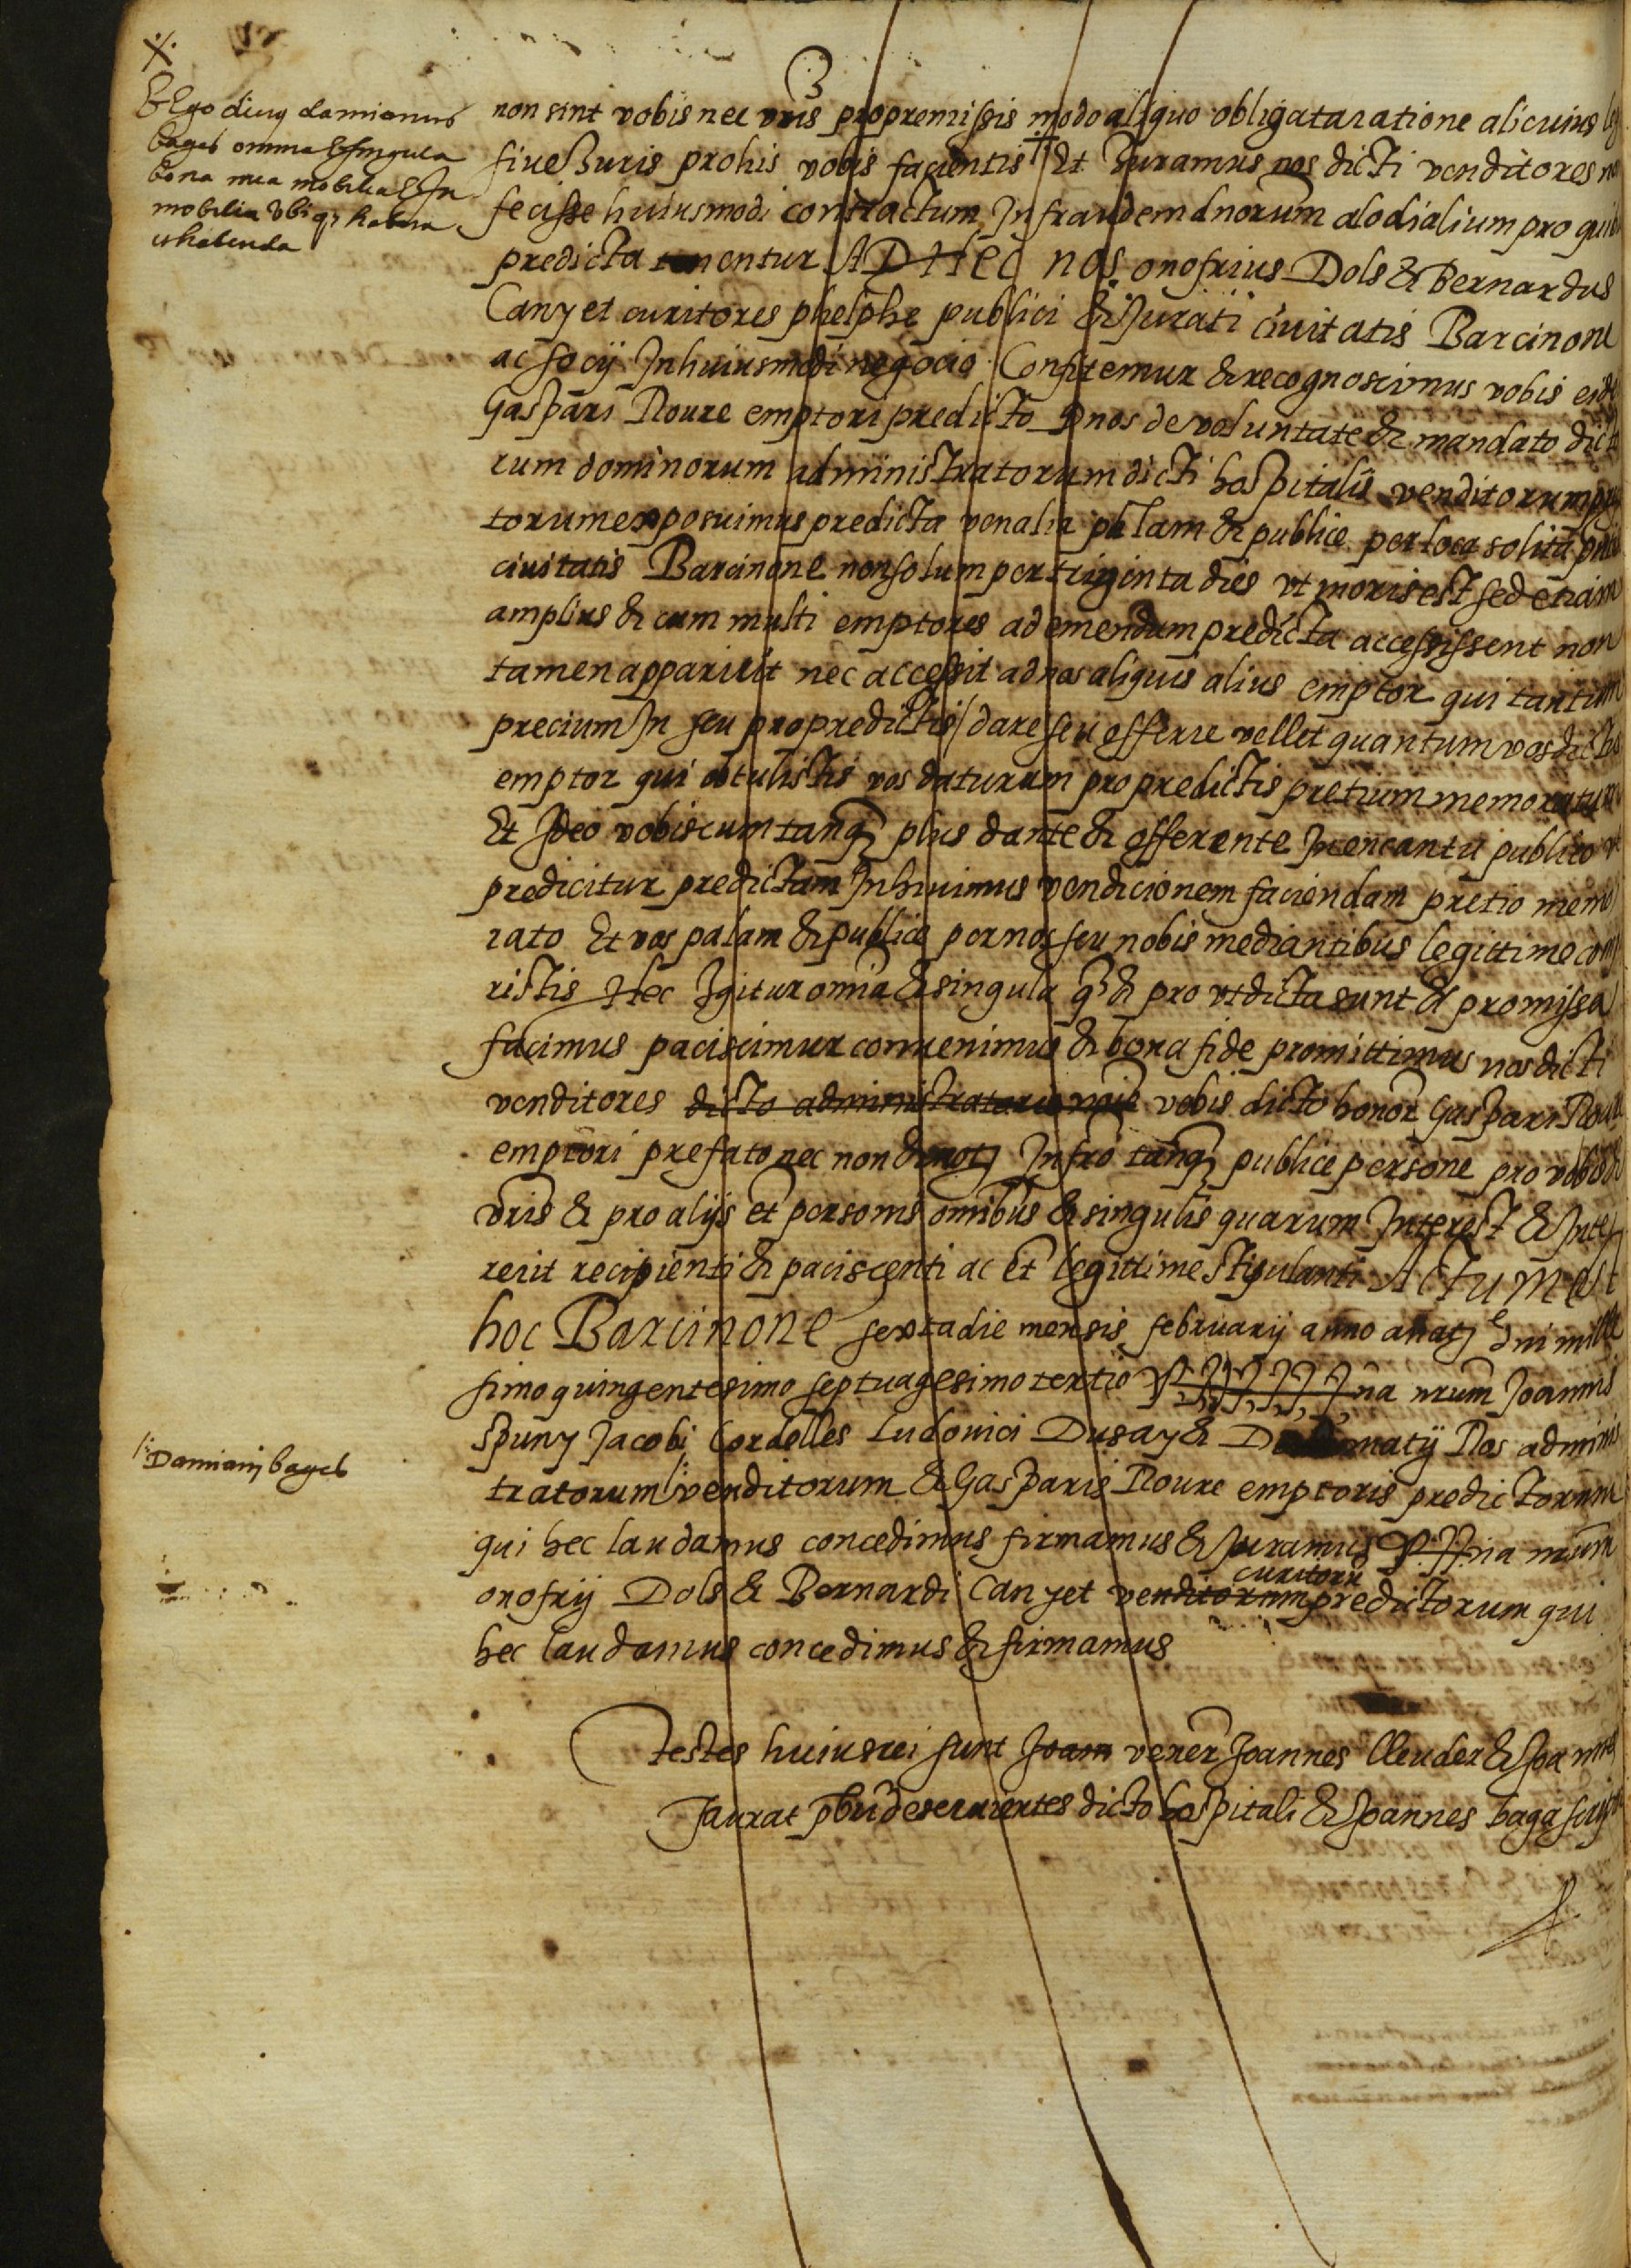 Et Ego dictus damianus
bages omnia & singula
bona mea mobilia & In
mobilia vbiq; habita
& habenda
non sint vobis nec vris pro premissis modo aliquo obligata ratione alicuius
siue Juris pro his vobis facientis Et Juramus nos dicti venditores
fecisse huiusmodi contractum In fraudem dnorum alodialium pro
predicta tenentur AD Hec nos onofrius Dols & Bernardus
Canyet curitores phelphe publici & Jurati ciuitatis Barcinone
ac socij In huiusmodi negocio Confitemur & recognoscimus vobis
Gaspari Roure emptori predicto nos de voluntate & mandato
rum dominorum administratorum dicti hospitalis venditorum
torum exposuimus predicta venalia palam & publice per loca solita
ciuitatis Barcinone non solum per triginta dies vt moris est sed etiam
amplius & cum multi emptores ad emendum predicta accessissent non
tamen apparuit nec accessit ad nos aliquis alius emptor qui tantum
precium In seu pro predictis dare seu offerre vellet quantum vos dictus
emptor qui obtulistis vos daturum pro predictis pretium memoratum
Et Ideo vobiscum tanq plus dante & offerente In encantu publico vt
predicitur predictam Inhiuimus vendicionem faciendam pretio memo
rato Et vos palam & publice per nos seu nobis mediantibus legittime
ristis Hec Igitur omnia & singula & pro vt dicta sunt & promissa
facimus paciscimur conuenimus & bona fide promittimus nos dicti
venditores dicto administratori vobis dicto honor Gaspari Roure
emptori prefato nec non & not Infro tanq publice persone pro vobis &
vris & pro alijs et personis omibus & singulis quarum Interest & Inte
rerit recipienti & paciscenti ac et legittime stipulanti ACTum est
hoc Barcinone sexta die mensis februarij anno a nat dni mille
simo quingentesimo septuagesimo tertio na nrum Joannis
Spuny Jacobi Cordelles Ludouici Dusay & Ros adminis
Damianj bages
tratorum venditorum & Gasparis Roure emptoris predictorum
qui hec laudamus concedimus firmamus & Juramus na nrum
curitoru
onofrij Dols & Bernardi Canyet venditorum predictorum qui
hec laudamus concedimus & firmamus
Testes huius rei sunt Joam vener Joannes Cleuder & Joannes
Jaurat pbri deseruientes dicto hospitali & Joannes baga